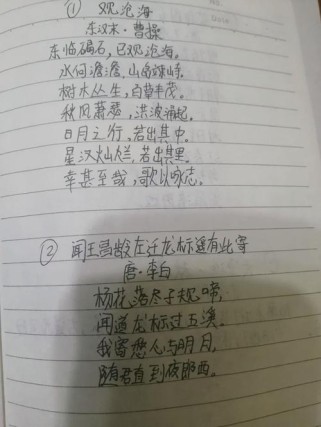 ① 观沧海
东汉末·曹操
东临碣石，已观沧海。
水何澹澹，山岛竦峙。
树木丛生，百草丰茂。
秋风萧瑟，洪波涌起。
日月之行，若出其中。
星汉灿烂，若出其里。
幸甚至哉，歌以咏志。
② 闻王昌龄左迁龙标遥有此寄
唐·李白
杨花落尽子规啼，
闻道龙标过五溪。
我寄愁心与明月，
随君直到夜郎西。